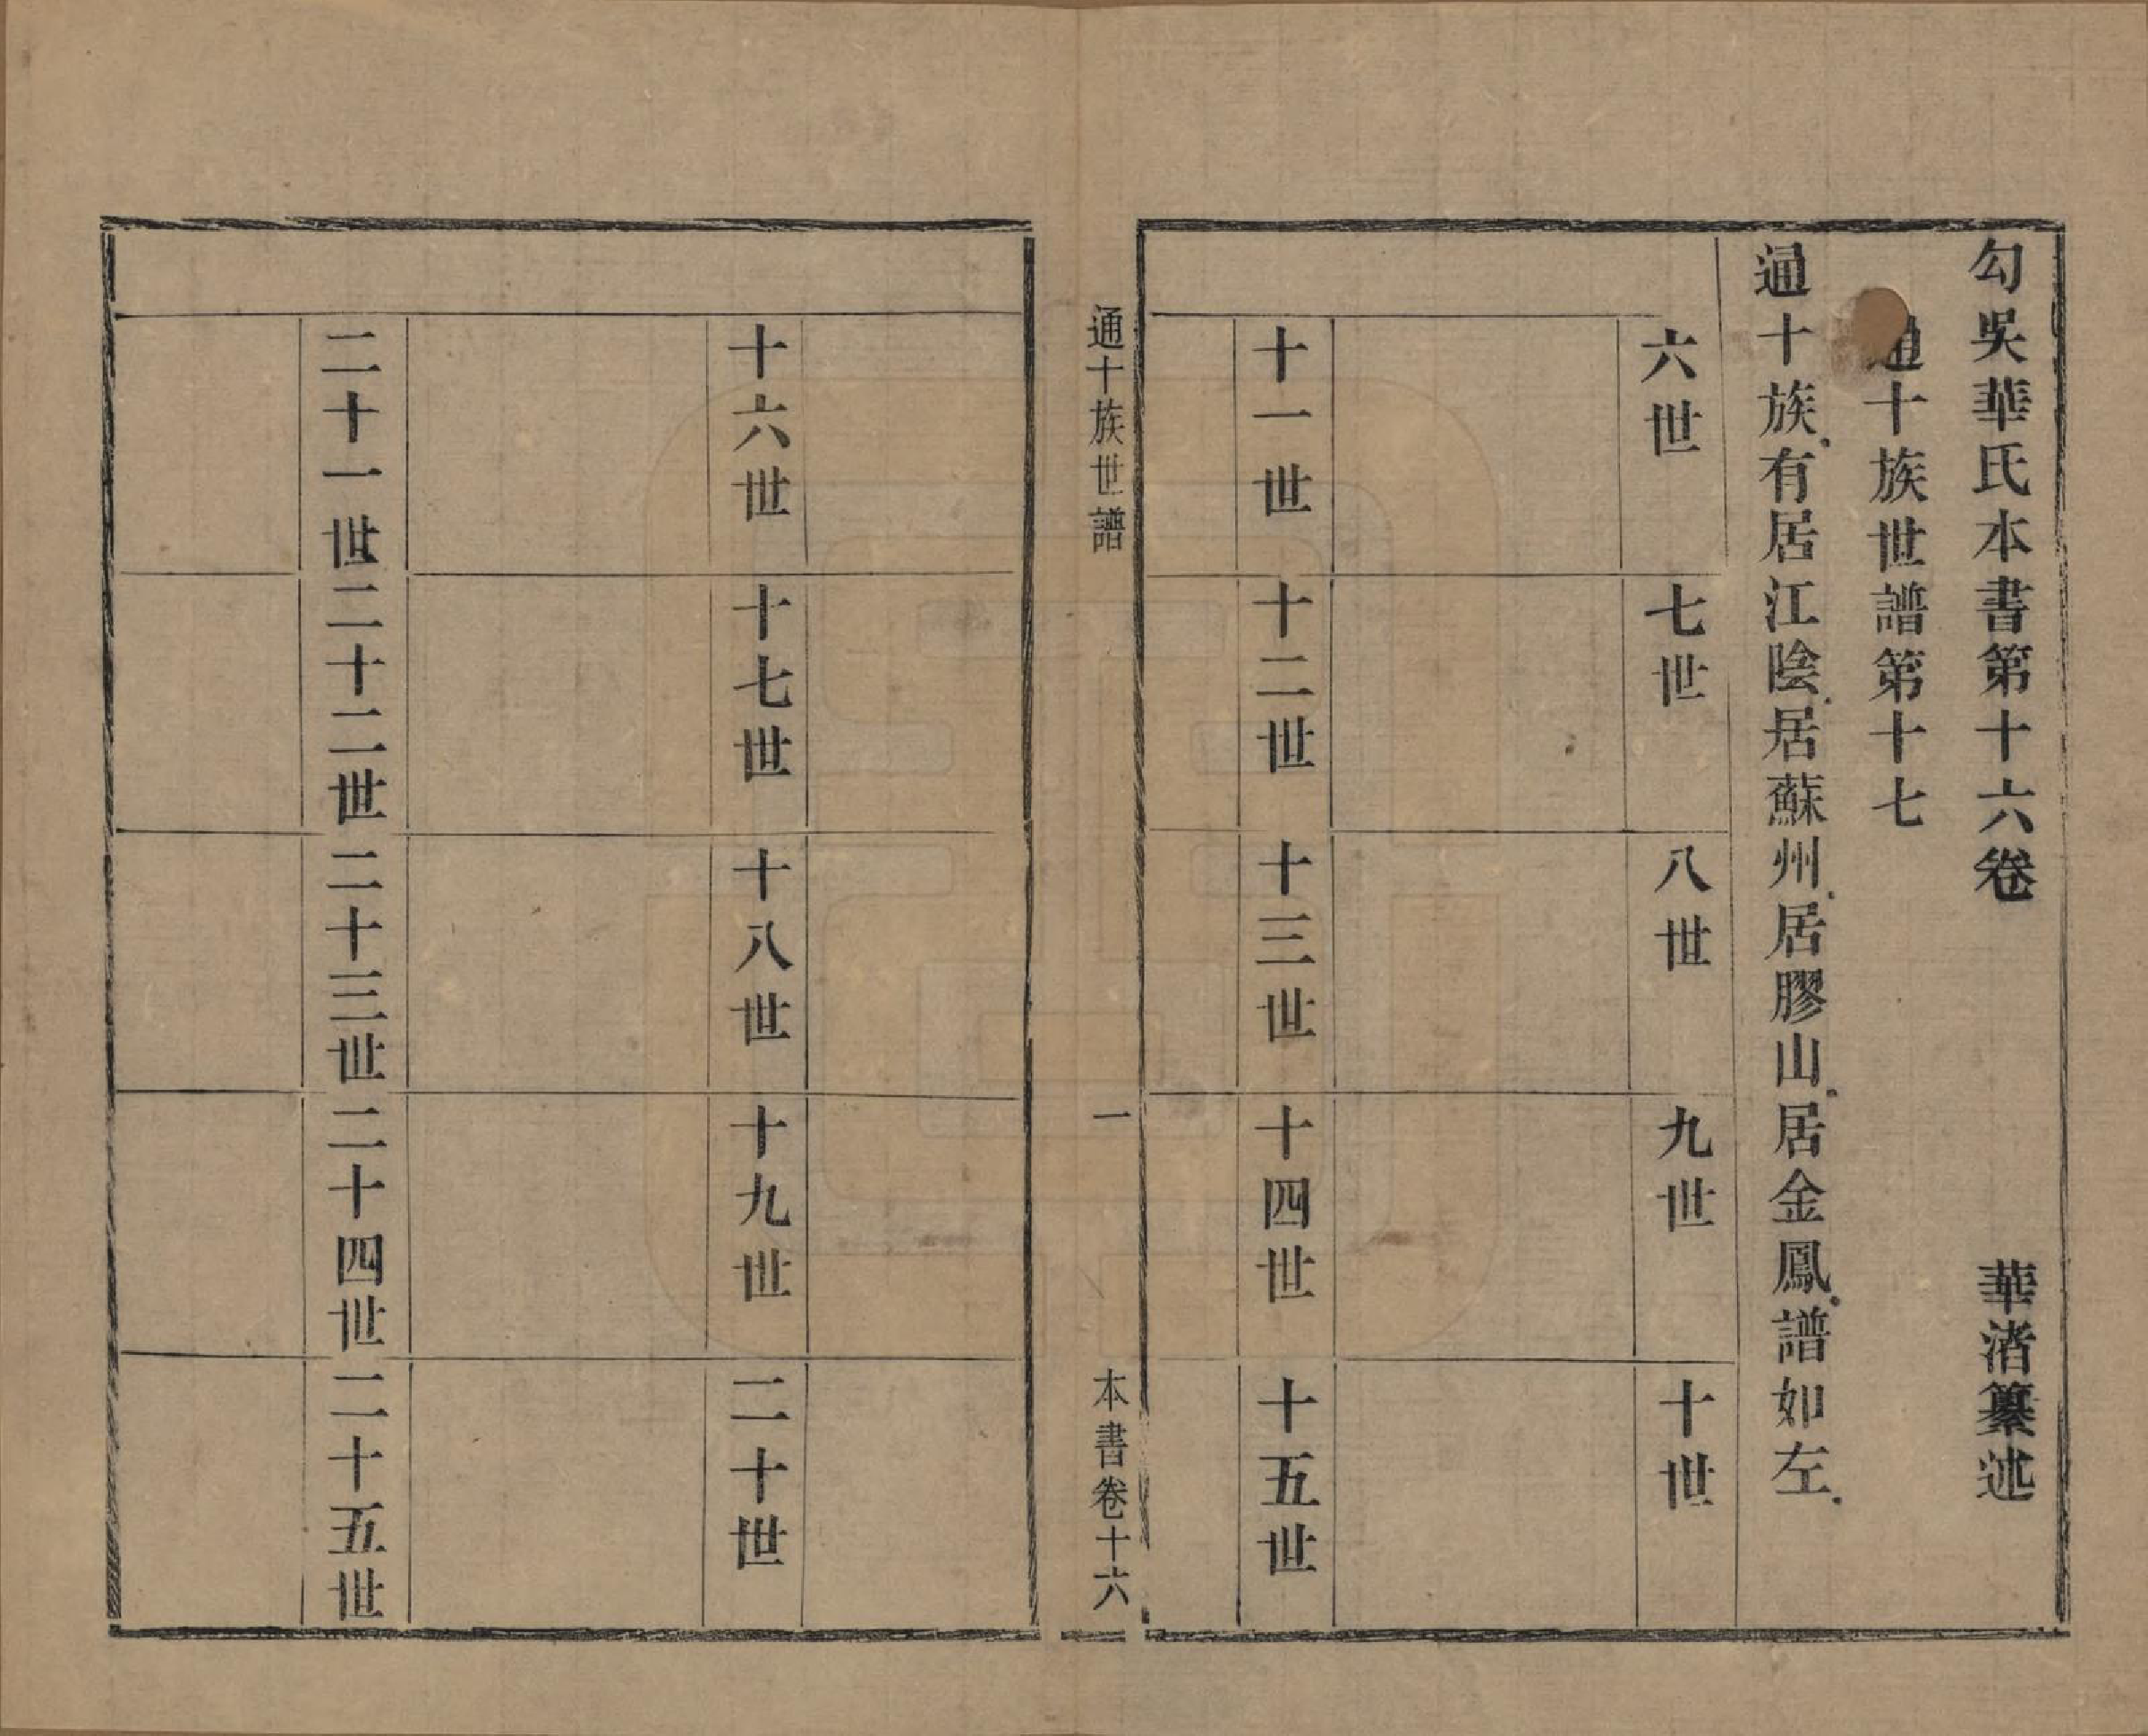 勾吳華氏本書第十六卷
華渚纂述
通十族世譜第十七
通十族有居江陰居蘇州居膠山居金鳳譜如左
六世
七世
八世
九世
十世
十一世
十二世
十三世
十四世
十五世
通十族世譜
一
本書卷十六
十六世
十七世
十八世
十九世
二十世
二十一世
二十二世
二十三世
二十四世
二十五世